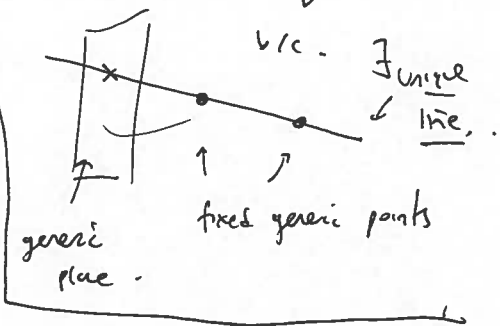 b/c. ∃ unique
line.
fixed generic points
generic
plane.